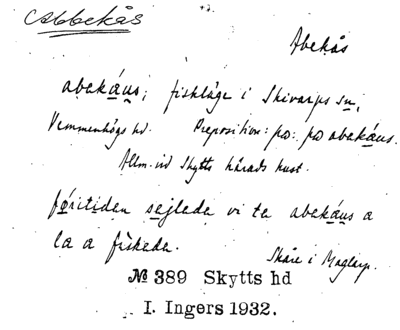 Abbekås
Abekås
abekáus; fiskläge i Skivarps sn,
Vemmenhögs hd. Preposition: po: po abekáus.
Allm. vid Skytts härads kust.
fǿritiden sejlade vi te abekáus a
la a fiskada.
Skåre i Maglarp.
№ 389 Skytts hd
I. Ingers 1932.